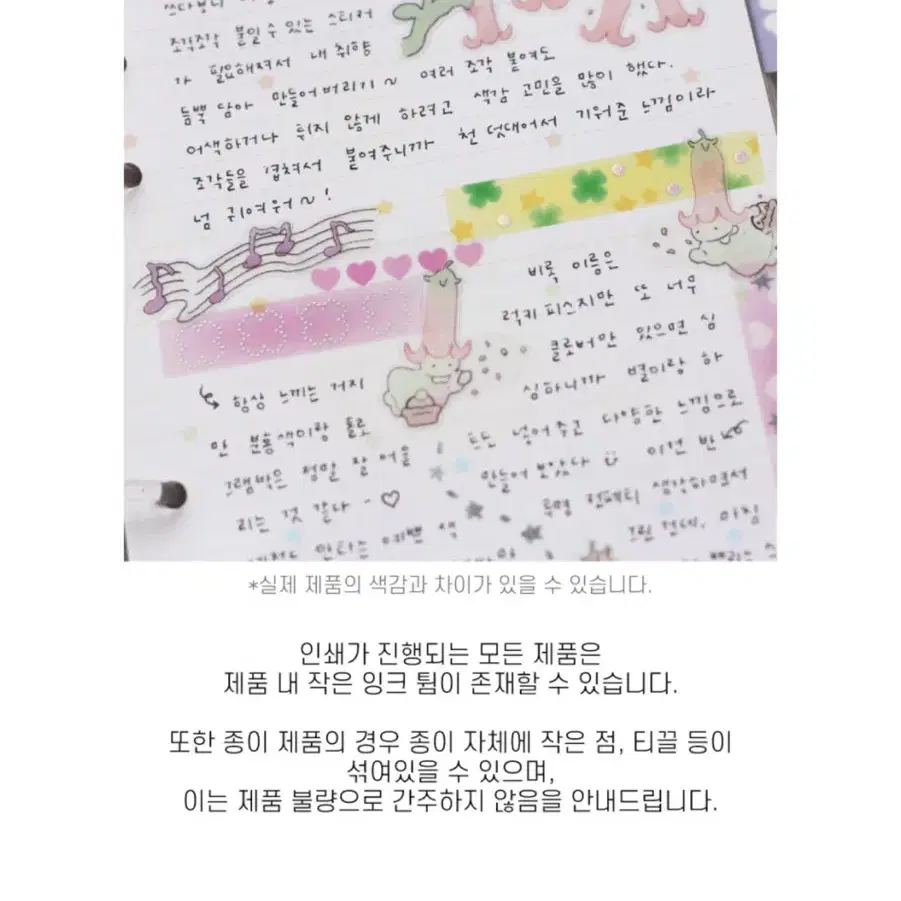 쓰다보니
조각조각 붙일 수 있는 스티커
가 필요해져서 내 취향
듬뿍 담아 만들어버리기~ 여러 조각 붙여도
어색하거나 튀지 않게 하려고 색감 고민을 많이 했다.
조각들을 겹쳐서 붙여주니까 천 덧대어서 기워준 느낌이라
넘 귀여워~!
항상 느끼는 거지
만 분홍색이랑 홀로
그램박은 정말 잘 어울
리는 것 같다 - ♡
만타는 예쁜 색
비록 이름은
럭키 피스지만 또 너무
클로버만 있으면 심
심하니까 별이랑 하
트도 넣어주고 다양한 느낌으로
만들어 보았다 이건 반
투명 컨페티 생각하면서
그린 건데, 마침
*실제 제품의 색감과 차이가 있을 수 있습니다.
인쇄가 진행되는 모든 제품은
제품 내 작은 잉크 튐이 존재할 수 있습니다.
또한 종이 제품의 경우 종이 자체에 작은 점, 티끌 등이
섞여있을 수 있으며,
이는 제품 불량으로 간주하지 않음을 안내드립니다.